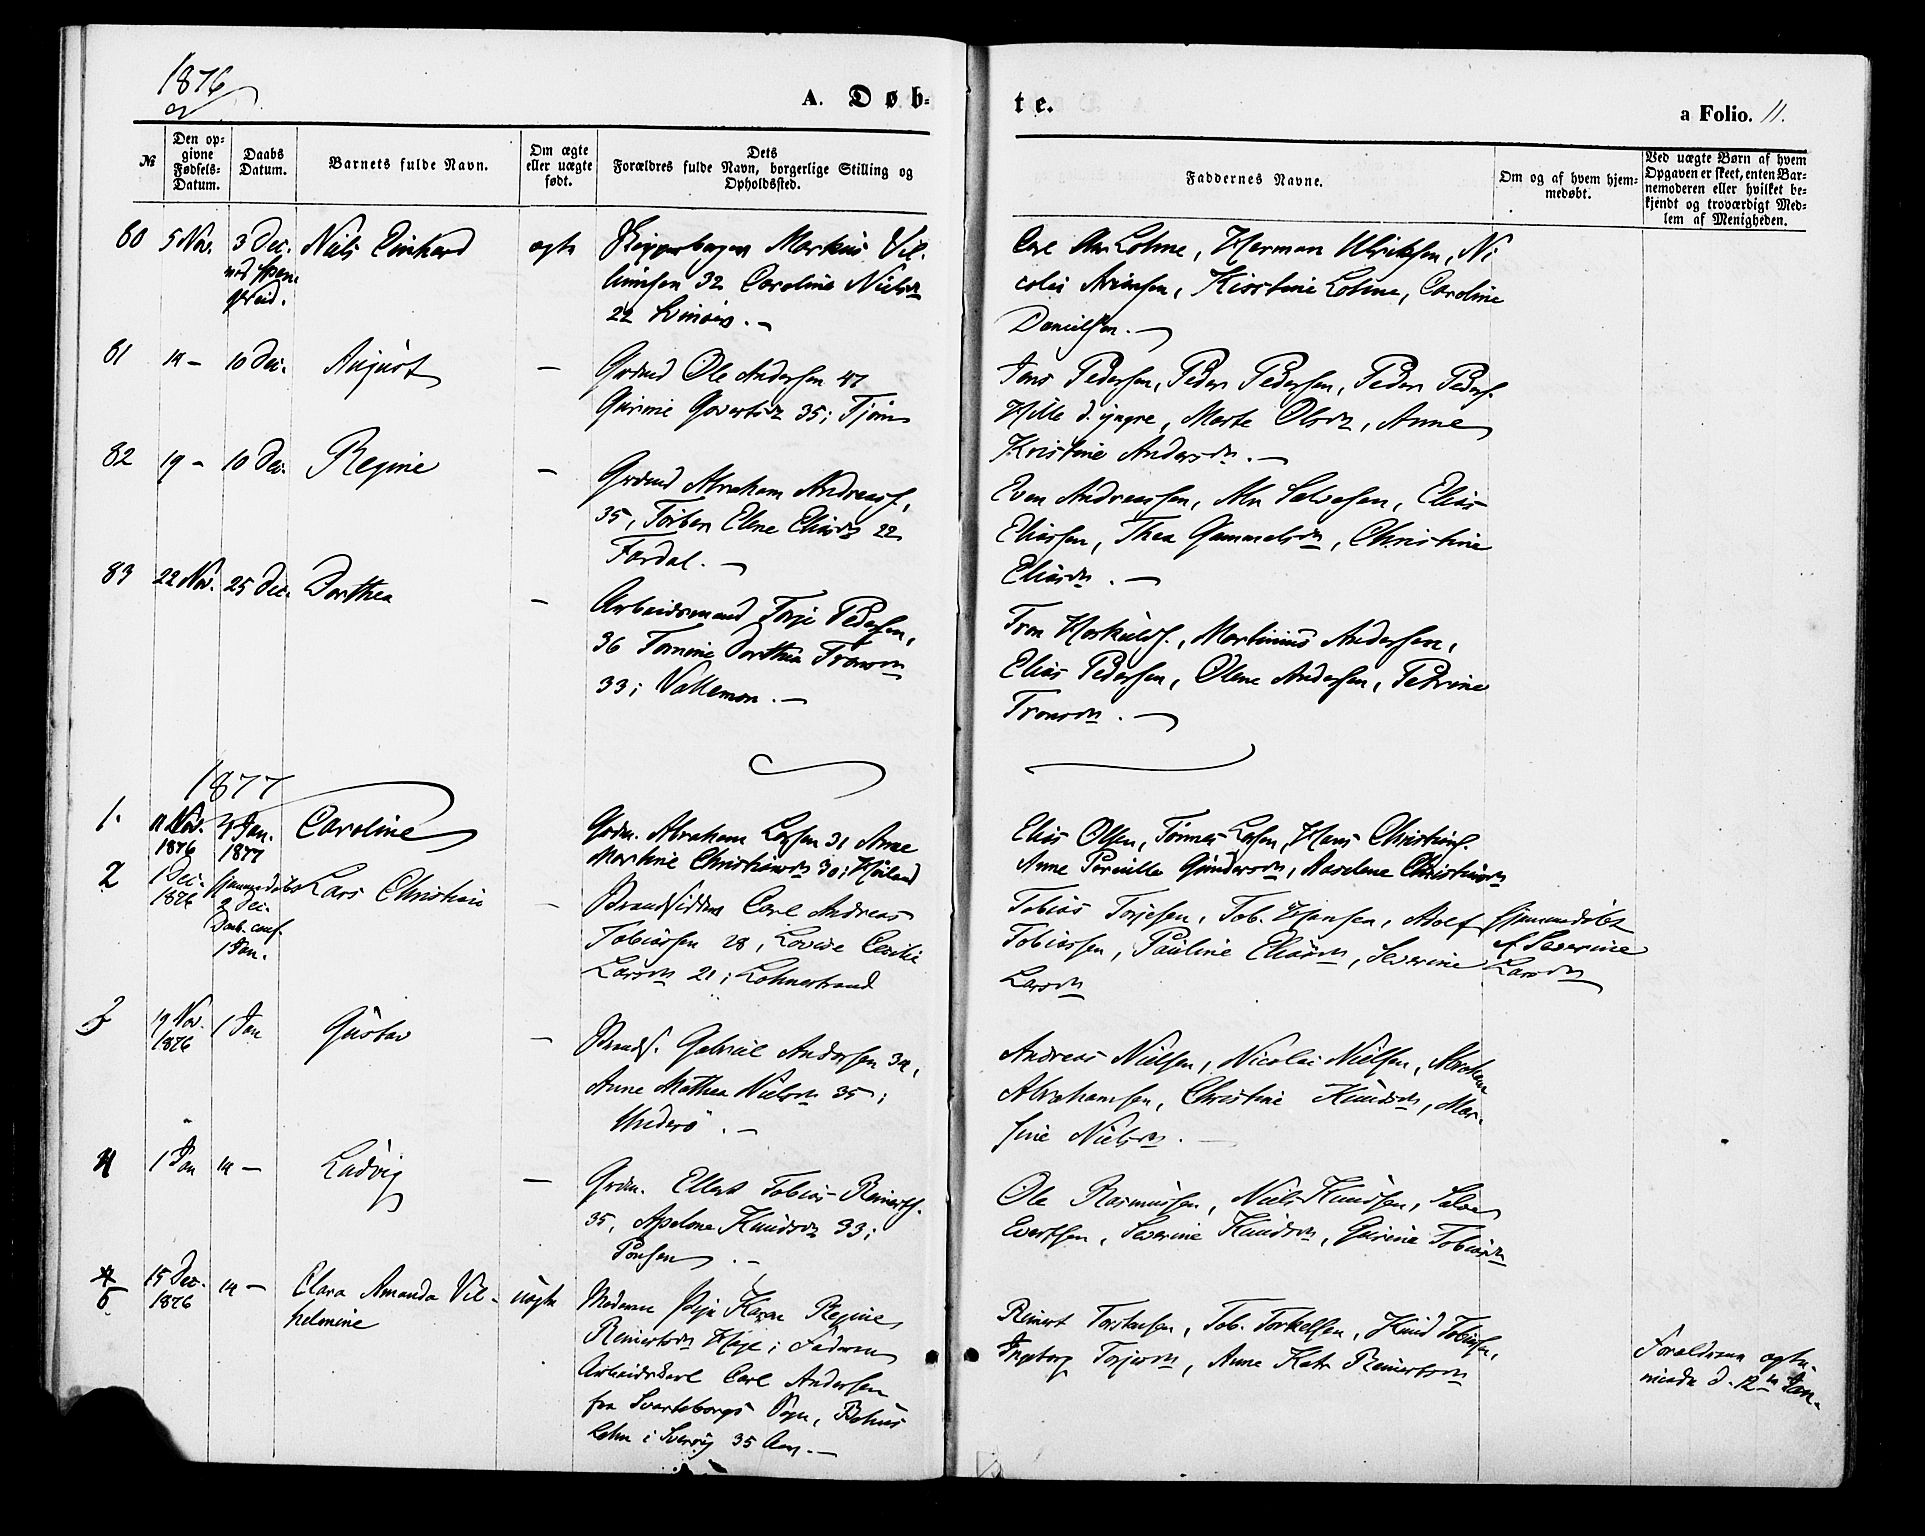 1876
A. Døb-
te.
a Folio. 11.
№
Den op-
givne
Fødsels-
Datum.
Daabs
Datum.
Barnets fulde Navn.
Om ægte
eller uægte
født.
Dets
Forældres fulde Navn, borgerlige Stilling og
Opholdssted.
Faddernes Navne.
Om og af hvem hjem-
medøbt.
Ved uægte Børn af hvem
Opgaven er skeet, enten Bar-
nemoderen eller hvilket be-
kjendt og troværdigt Med-
lem af Menigheden.
80 5 Nov. 3 Dec. Niels ægte Markus Vil-
32 Caroline Nielsdn
22
Carl Lohne, Herman Ulriksen, Ni
colai Kirstine Lohne, Caroline
Danielsen. —
81 14 — 10 Dec. August —
Grdmd Ole Andersen 47
Gurine 35;
Jens Pedersen, Peder Pedersen, Peder Peders.
Hille d. yngre, Marte Olsdn, Anne
Kristine Andersdn. —
82 19 — 10 Dec. Regine —
Grdmd Abraham Andreass.
35, Elene Eliasdn 22
Fardal. —
Even Andreassen, Abr. Salvesen, Elias
Eliassen, Thea Gummelsdn, Christine
Eliasdn. —
83 22 Nov. 25 Dec. Dorthea —
Arbeidsmand Torje Pedersen,
36 Tomine Dorthea Tronsdn
33; Vallemon. —
Tron Martinius Andersen,
Elias Pedersen, Olene Andersen, Petrine
Tronsdn. —
1877
1. 11 Nov.
1876
Jan.
1877
Caroline
Grdm. Abraham Larsen 31 Anne
Martine Christiansdn 30;
Elias Olsen, Tønnes Larsen, Hans Christians.
Anne Pernille Gundersdn, Christiansdn
2 1 Dec.
1876
Hjemmedøbt
2 Dec.
Daab. conf.
1 Jan.
Lars Christian —
Strandsidder Carl Andreas
Tobiassen 28, Lovise Cecilie
Larsdn 21; Lohnestrand
Tobias Torjesen, Tob. Hansen, Adolf
Tobiassen, Pauline Eliasdn, Severine
Larsdn
Hjemmedøbt
af Severine
Larsdn
3 19 Nov.
1876
1 Jan Gustav —
Strands. Gabriel Andersen 34,
Anne Mathea Nielsdn 35;
Underø. —
Andreas Nielsen, Nicolai Nielsen, Abraham
Abrahamsen, Christine Knudsdn, Mar-
Nielsdn. —
4 1 Jan 14 — Ludvig —
Grdm. Ellert Tobias Reinerts.
35, Apelone Knudsdn 33;
Ole Rasmussen, Niels Knudsen, Salve
Evertsen, Severine Knudsdn, Gurine Tobiasdn
5. 15 Dec.
1876
14 — Clara Amanda Vil-
helmine
uægte
Moderen Pige Karen Regine
Reinertsdn Høye; Faderen
Arbeidskarl Carl Andersen
fra Svarteborgs Sogn, Bohus
Lehn i Sverrig 35 Aar. —
Reinert Torstensen, Tob. Torkelsen, Knud Tobiassen,
Ingeborg Torjesdn, Anne Kath Reinertsdn
Forældrene ægte-
viede d. 12te Jan.